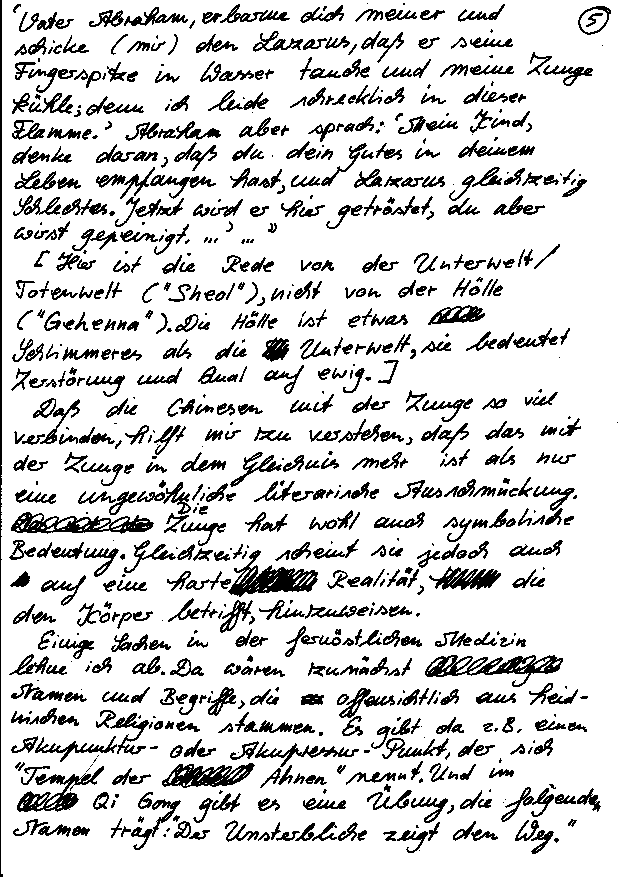 'Vater Abraham, erbarme dich meiner und
5
schicke (mir) den Lazarus, daß er seine
Fingerspitze in Wasser tauche und meine Zunge
kühle; denn ich leide schrecklich in dieser
Flamme.' Abraham aber sprach: 'Mein Kind,
denke daran, daß du dein Gutes in deinem
Leben empfangen hast, und Lazarus gleichzeitig
Schlechtes. Jetzt wird er hier getröstet, du aber
wirst gepeinigt. ...' ..."
[Hier ist die Rede von der Unterwelt/
Totenwelt ("Sheol"), nicht von der Hölle
("Gehenna"). Die Hölle ist etwas
Schlimmeres als die Unterwelt, sie bedeutet
Zerstörung und Qual auf ewig.]
Daß die Chinesen mit der Zunge so viel
verbinden, hilft mir zu verstehen, daß das mit
der Zunge in dem Gleichnis mehr ist als nur
eine ungewöhnliche literarische Ausschmückung.
Die Zunge hat wohl auch symbolische
Bedeutung. Gleichzeitig scheint sie jedoch auch
auf eine harte Realität, die
den Körper betrifft, hinzuweisen.
Einige Sachen in der fernöstlichen Medizin
lehne ich ab. Da wären zunächst
Namen und Begriffe, die offensichtlich aus heid-
nischen Religionen stammen. Es gibt da z.B. einen
Akupunktur- oder Akupressur-Punkt, der sich
"Tempel der Ahnen" nennt. Und im
Qi Gong gibt es eine Übung, die folgenden
Namen trägt: "Der Unsterbliche zeigt den Weg."